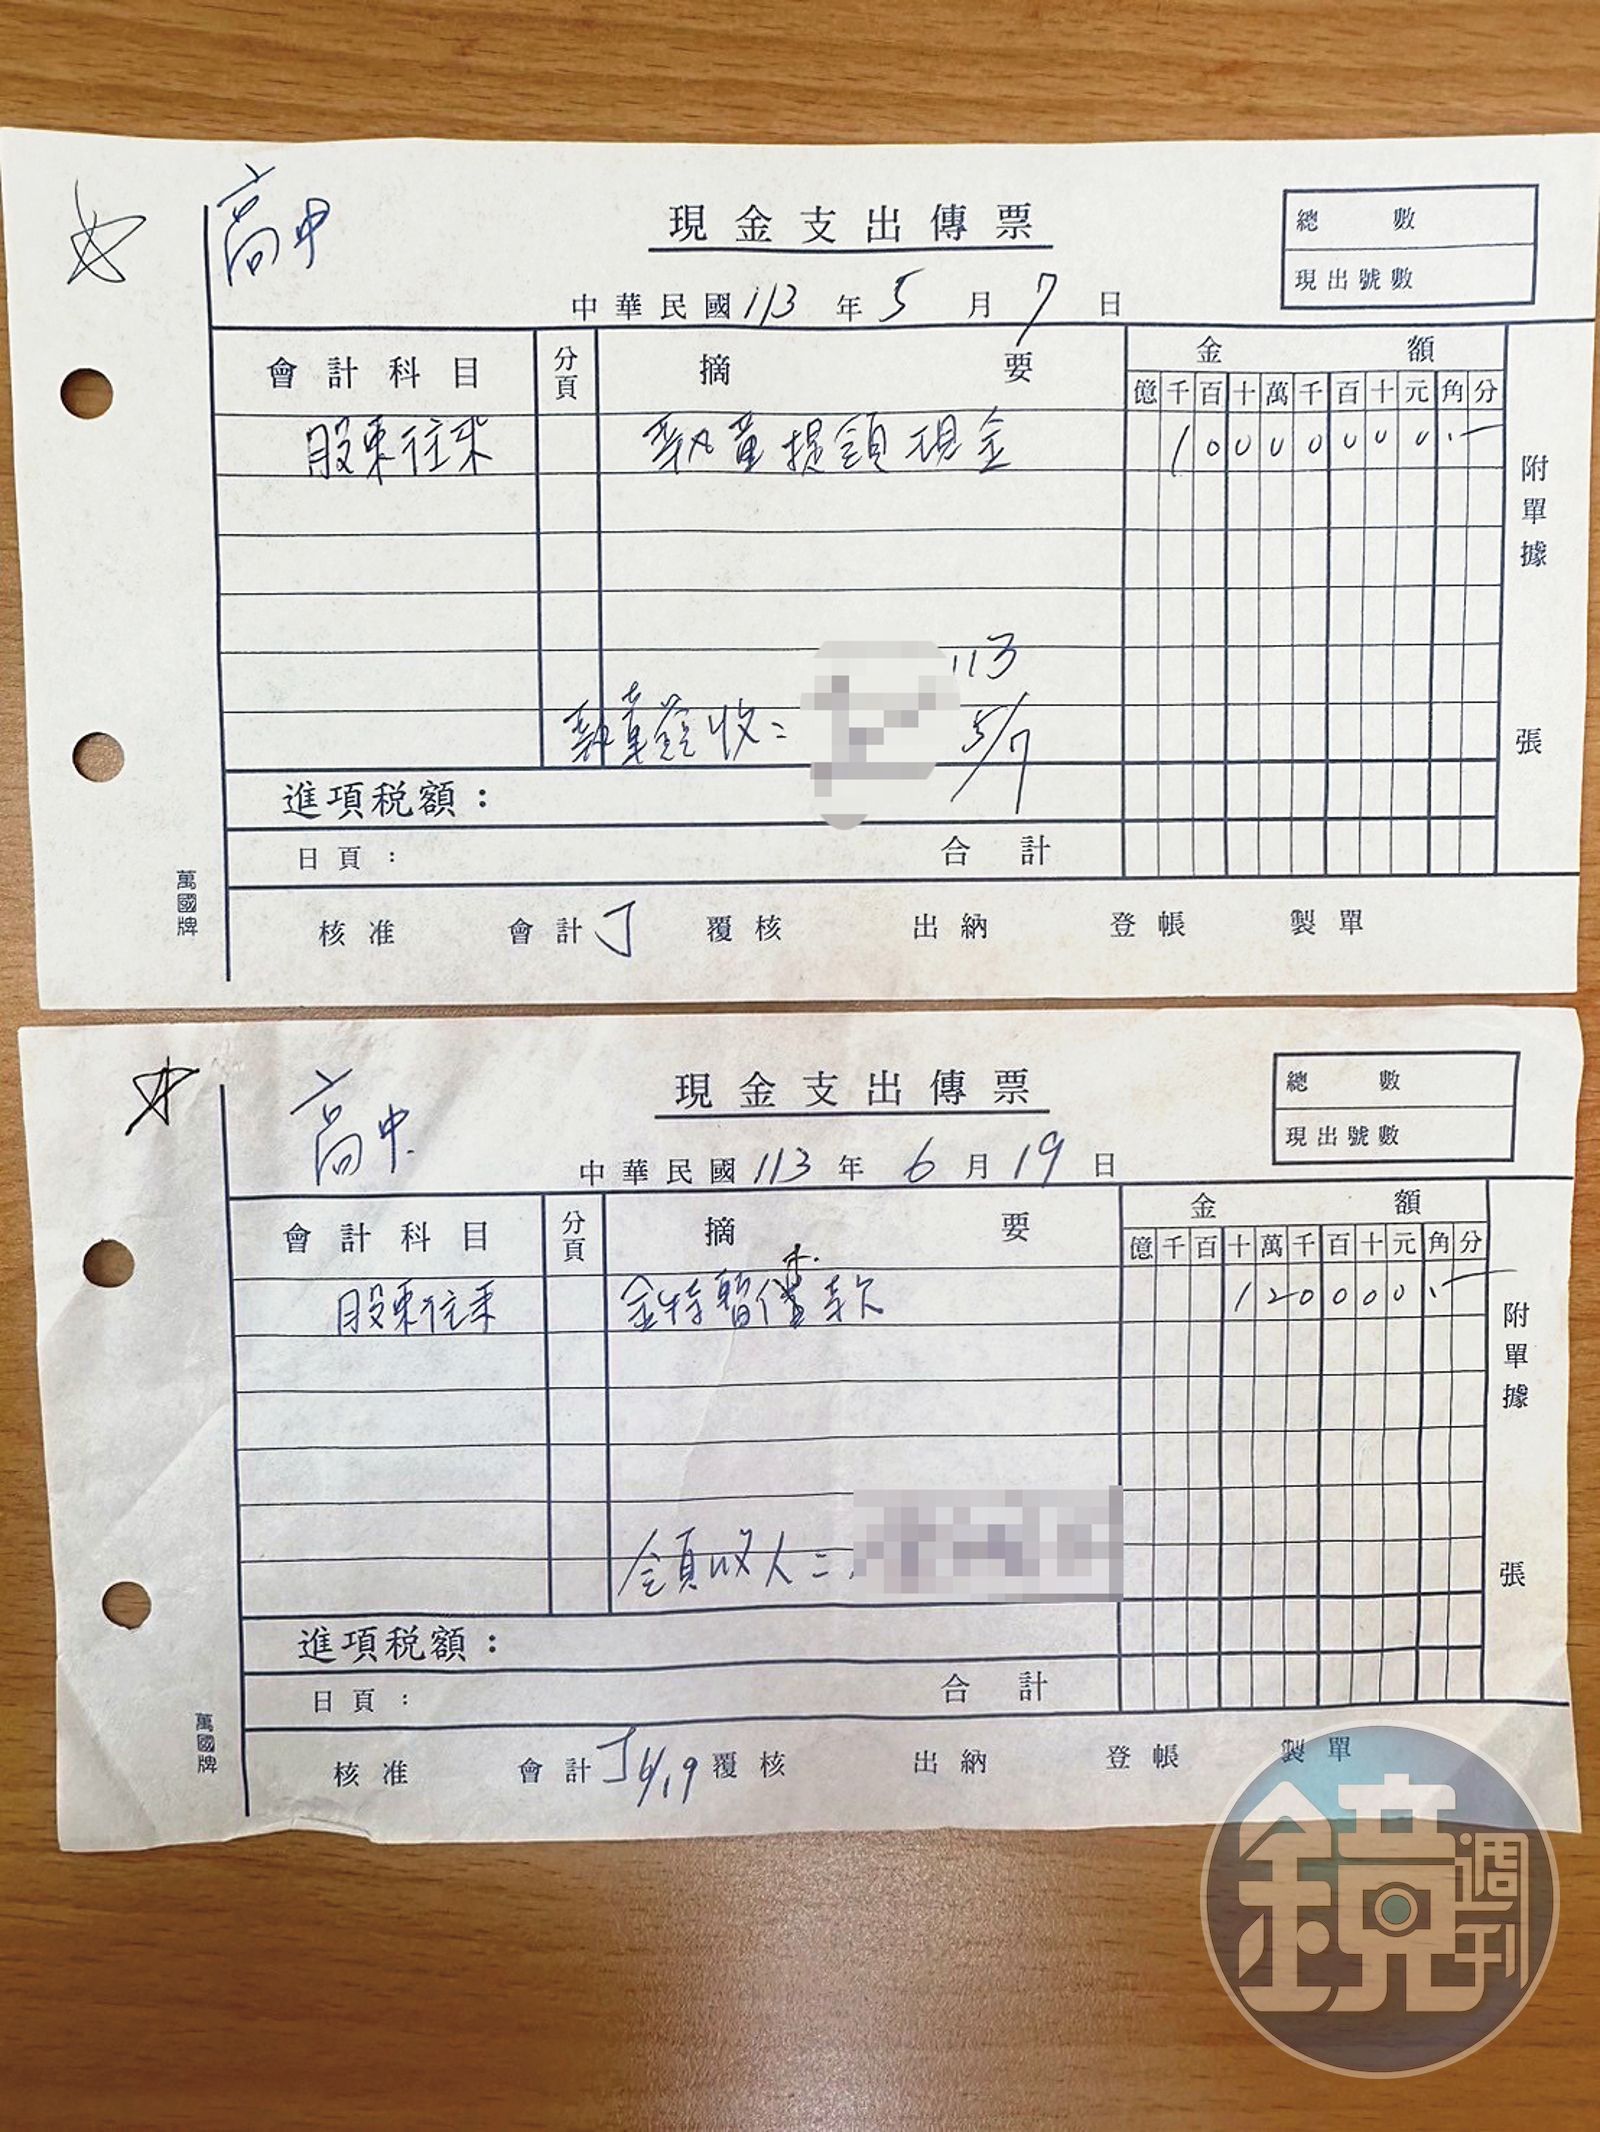 高中
現金支出傳票
總數
現出號數
中華民國113年5月7日
會計科目 分頁 摘要 金額
億千百十萬千百十元角分
股東往來 執董提領現金 10000000.-
附單據
張
113
執董簽收: 5/7
進項稅額:
日頁: 合計
萬國牌
核准 會計 J 覆核 出納 登帳 製單
高中.
現金支出傳票
總數
現出號數
中華民國113年6月19日
會計科目 分頁 摘要 金額
億千百十萬千百十元角分
股東往來 金特暫借款 120000.-
附單據
張
領收人:
進項稅額:
日頁: 合計
萬國牌
核准 會計 J 6/19 覆核 出納 登帳 製單
鏡週刊